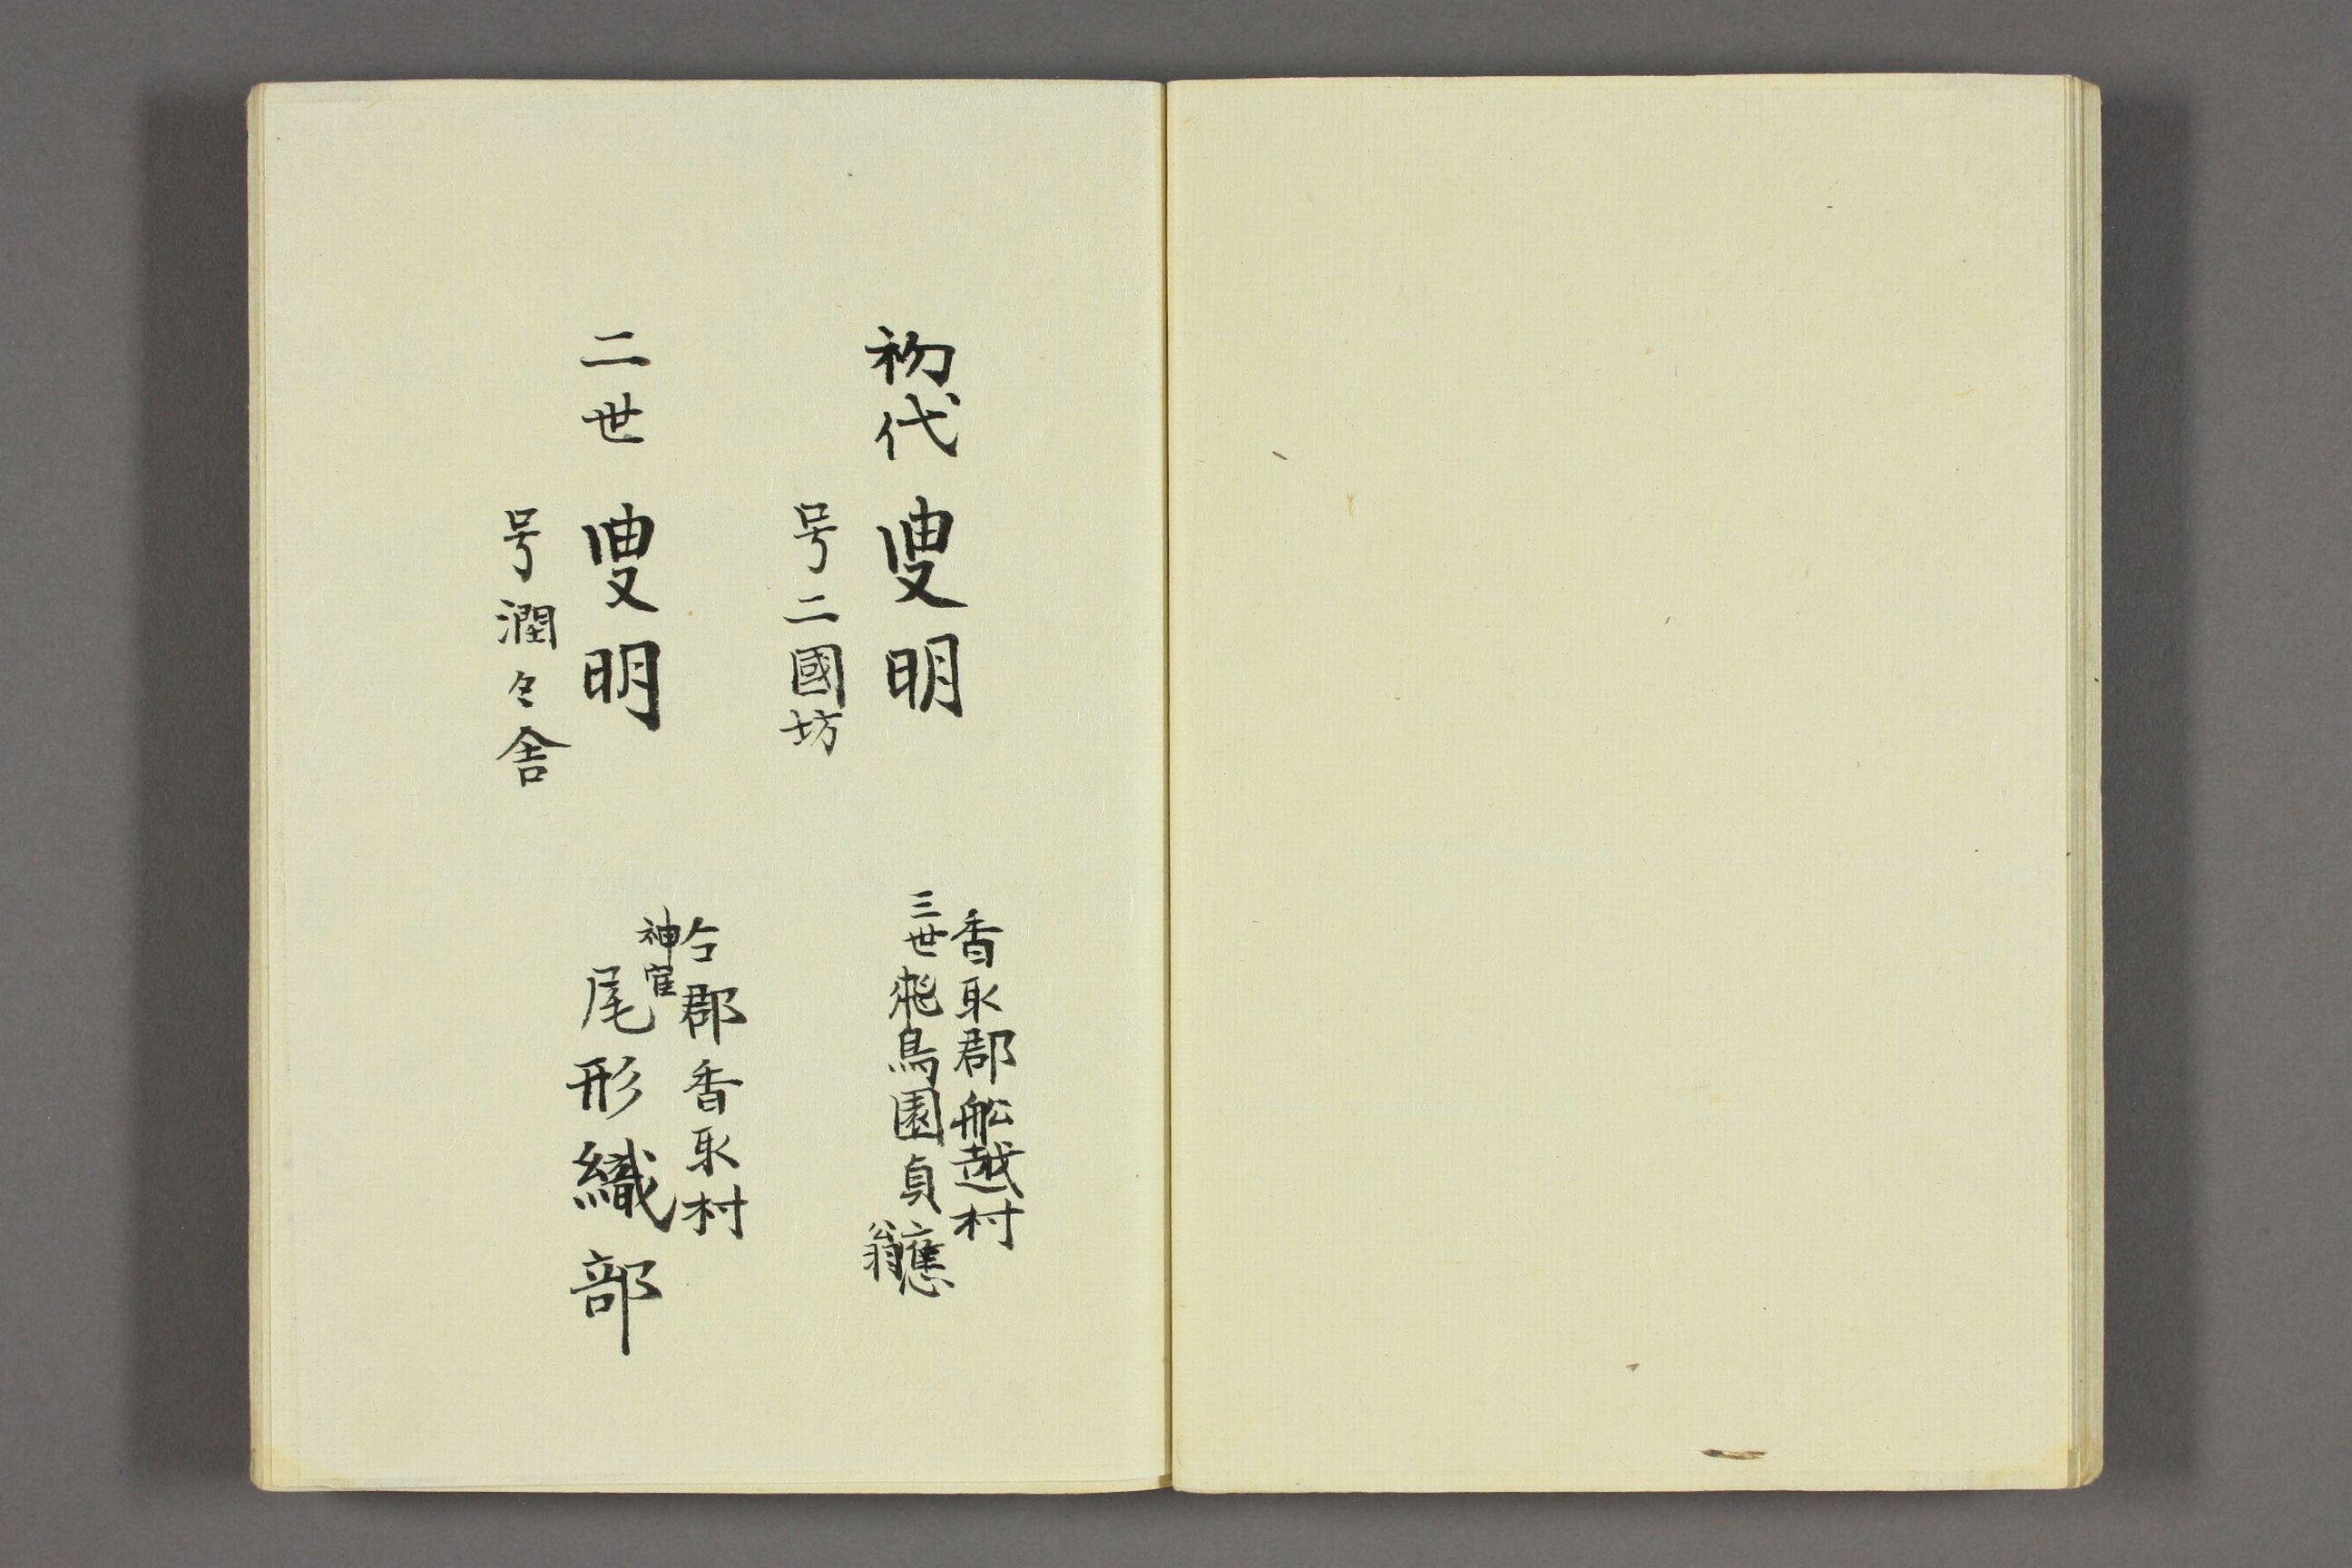 初代 叟明
号二國坊
香取郡舩越村
三世飛鳥園貞應翁
二世 叟明
号潤々舎
仝郡香取村
神官
尾形織部